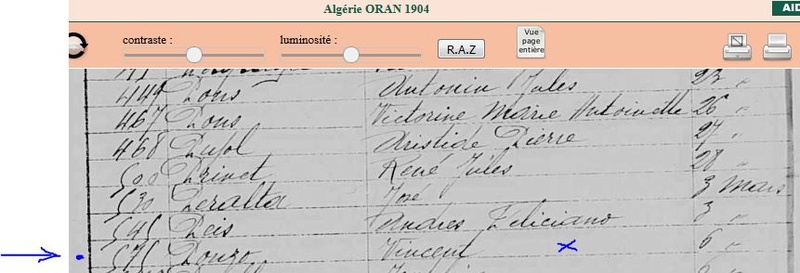 Algérie ORAN 1904
AID
contraste :
luminosité :
R.A.Z
Vue
page
entière
449 Pons Antonin Jules 23 "
467 Pons Victorine Marie Antoinette 26 "
468 Pujol Aristide Pierre 27 "
Prinet René Jules 28 "
Peralta José 3 Mars
Peis Andres Feliciano 3 "
Vincent 6 "